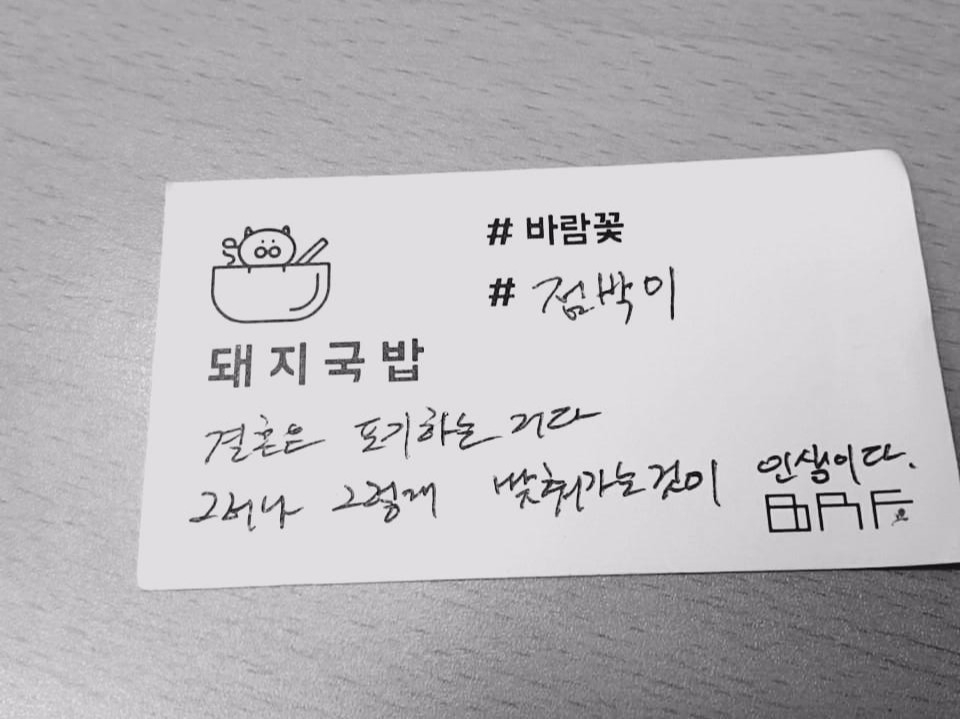 # 바람꽃
# 점박이
돼지국밥
결혼은 포기하는 거다
그러나 그렇게 맞춰가는것이 인생이다.
BAF